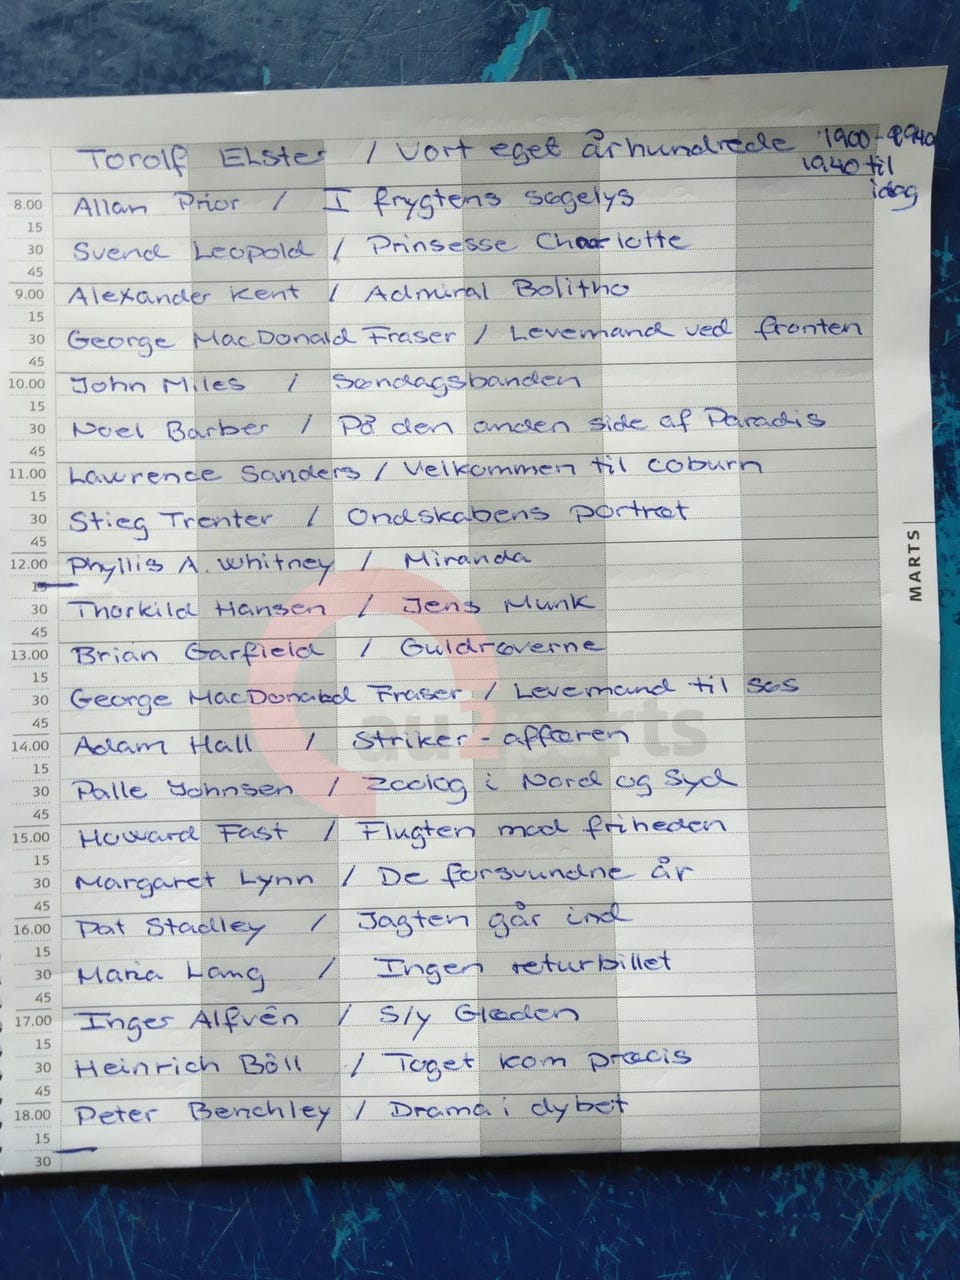 Torolf Elster / Vort eget århundrede 1900-1940
1940 til
idag
8.00 Allan Prior / I frygtens søgelys
15
30 Svend Leopold / Prinsesse Charlotte
45
9.00 Alexander Kent / Admiral Bolitho
15
30 George MacDonald Fraser / Levemand ved fronten
45
10.00 John Miles / Søndagsbanden
15
30 Noel Barber / På den anden side af Paradis
45
11.00 Lawrence Sanders / Velkommen til coburn
15
30 Stieg Trenter / Ondskabens portræt
45
12.00 Phyllis A. Whitney / Miranda
15
30 Thorkild Hansen / Jens Munk
45
13.00 Brian Garfield / Guldrøverne
15
30 George MacDonald Fraser / Levemand til søs
45
14.00 Adam Hall / Striker-affæren
15
30 Palle Johnsen / Zoolog i Nord og Syd
45
15.00 Howard Fast / Flugten mod friheden
15
30 Margaret Lynn / De forsvundne år
45
16.00 Pat Stadley / Jagten går ind
15
30 Maria Lang / Ingen returbillet
45
17.00 Inger Alfvén / S/y Glæden
15
30 Heinrich Böll / Toget kom præcis
45
18.00 Peter Benchley / Drama i dybet
15
30
MARTS
au2parts